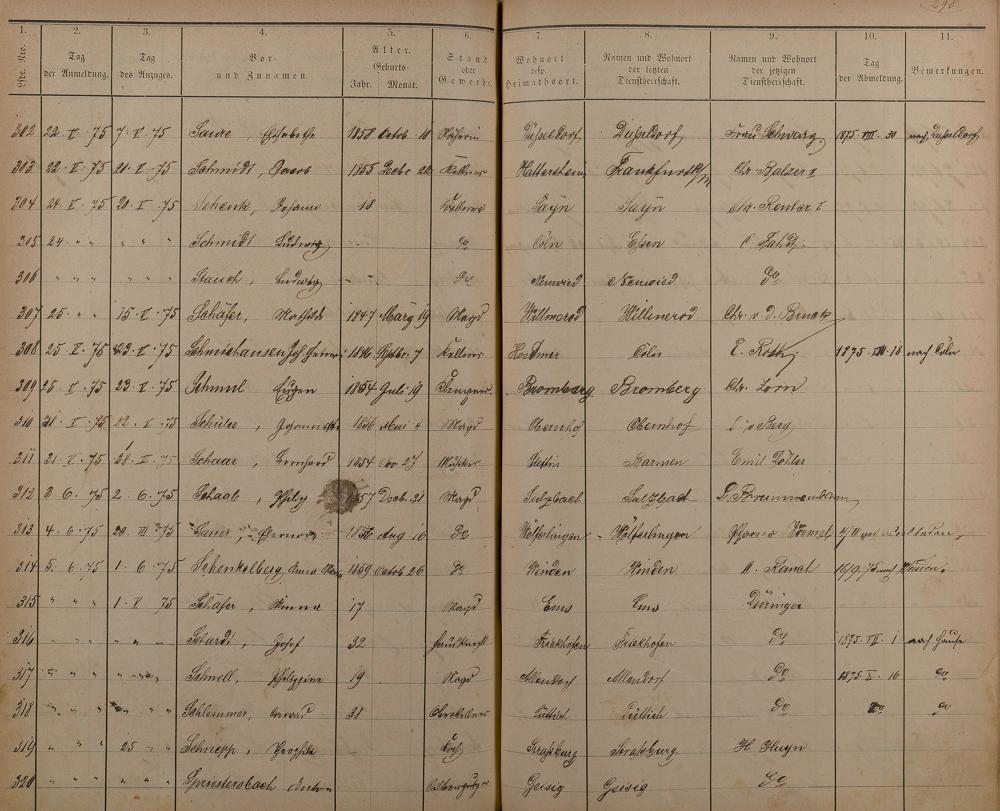 298
1. 2. 3. 4. 5. 6. 7. 8. 9. 10. 11.
Lfde. Nro. Tag der Anmeldung. Tag des Anzuges. Vor- und Zunamen. Alter. Geburts- Jahr. Monat. Stand oder Gewerbe. Wohnort resp. Heimathsort. Namen und Wohnort der letzten Dienstherrschaft. Namen und Wohnort der jetzigen Dienstherrschaft. Tag der Abmeldung. Bemerkungen.
302 22. V. 75 7. V. 75 Saure, Elisabethe 1858 Octob. 10 Näherin Düsseldorf Düsseldorf Frau Schwarz 1875 VIII. 30 nach Düsseldorf
303 22. V. 75 21. V. 75 Schmidt, Jacob 1855 Decbr 22 Kellner Hattersheim Frankfurt a/M Chr. Balzer I
304 24. V. 75 20. V. 75 Schenk, 18 Kellner Sayn Sayn Chr. Reuter I
305 24. " " " " " Schmidt Ludwig Do Cöln Essen C. Fahdt
306 " " " " " " Stauch, Ludwig - - Do Neuwied Neuwied Do
307 25. " " 15. V. 75 Schäfer, Mathilde 1847 März 19 Magd Willmerod Willmerod Chr. v. d. Bruck
308 25 V. 75 23. V. 75 Schmishausen Joh. 1846 Septbr. 7 Kellner Cöln C. Roth 1875 VIII 18 nach Cöln
309 25 V. 75 23. V. 75 Schmul Eugen 1854 Juli 19 Bromberg Bromberg Chr. Zorn
310 31. V. 75 22. V. 75 Schülze, 1856 Mai 4 Magd Obernhof Obernhof v Berg
311 31. V. 75 28. V. 75 Schaar, Bernhard 1854 Nov 27 Musiker Stettin Barmen Emil Döhler
312 3. 6. 75 2. 6. 75 Schaab, 1857 Decb. 21 Magd Sulzbach Sulzbach D. Brummenbaum
313 4. 6. 75 20. III. 75 Sauer, Aug 16 Do Wölferlingen Wölferlingen
314 5. 6. 75 1. 6. 75 Schenkelberg, Anna Maria 1859 Octob 26 Do Winden Winden A. Rauch 16/9. 75 nach
315 " " " 1. V 75 Schäfer, Minna 17 Magd Ems Ems Düringer
316 " " " " " " Stardt, Josef 32 Hausknecht Frickhofen Frickhofen Do 1875 VII. 1 nach Hause
317 " " " " " " Schnell, Philippine 19 Magd Allendorf Allendorf Do 1875 X. 16 do
318 " " " " " " Schlemmer, Conrad 21 Lüttich Lüttich Do do do
319 " " " 25 " " Schnepp, Koch Straßburg Straßburg H. Huyn
320 " " " " " " Spriestersbach Anton Geisig Geisig Do